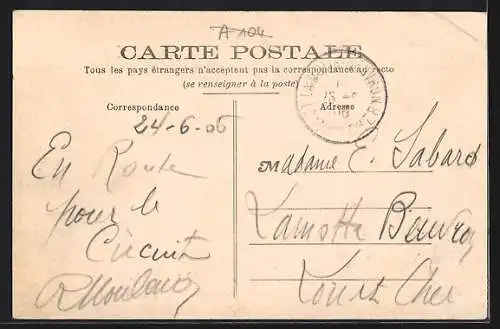 A 104
CARTE POSTALE
Tous les pays étrangers n'acceptent pas la correspondance au recto
(se renseigner à la poste)
Correspondance
Adresse
24-6-06
En Route
pour le
Circuit
Madame E. Sabard
Lamotte Beuvron
Loir et Cher